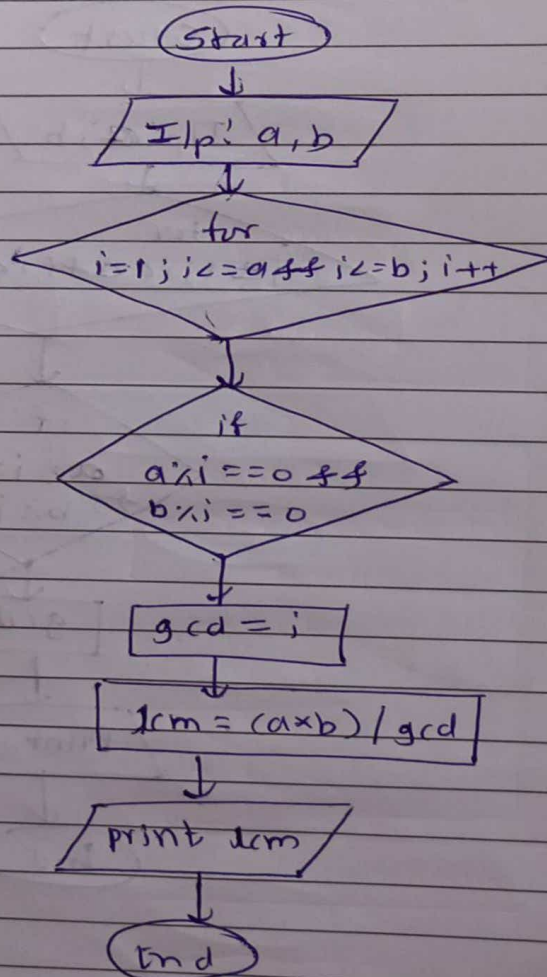 Start
I/p: a, b
for
i=1; i<=a && i<=b; i++
if
a%i==0 &&
b%i==0
gcd = i
lcm = (a×b)/gcd
print lcm
End